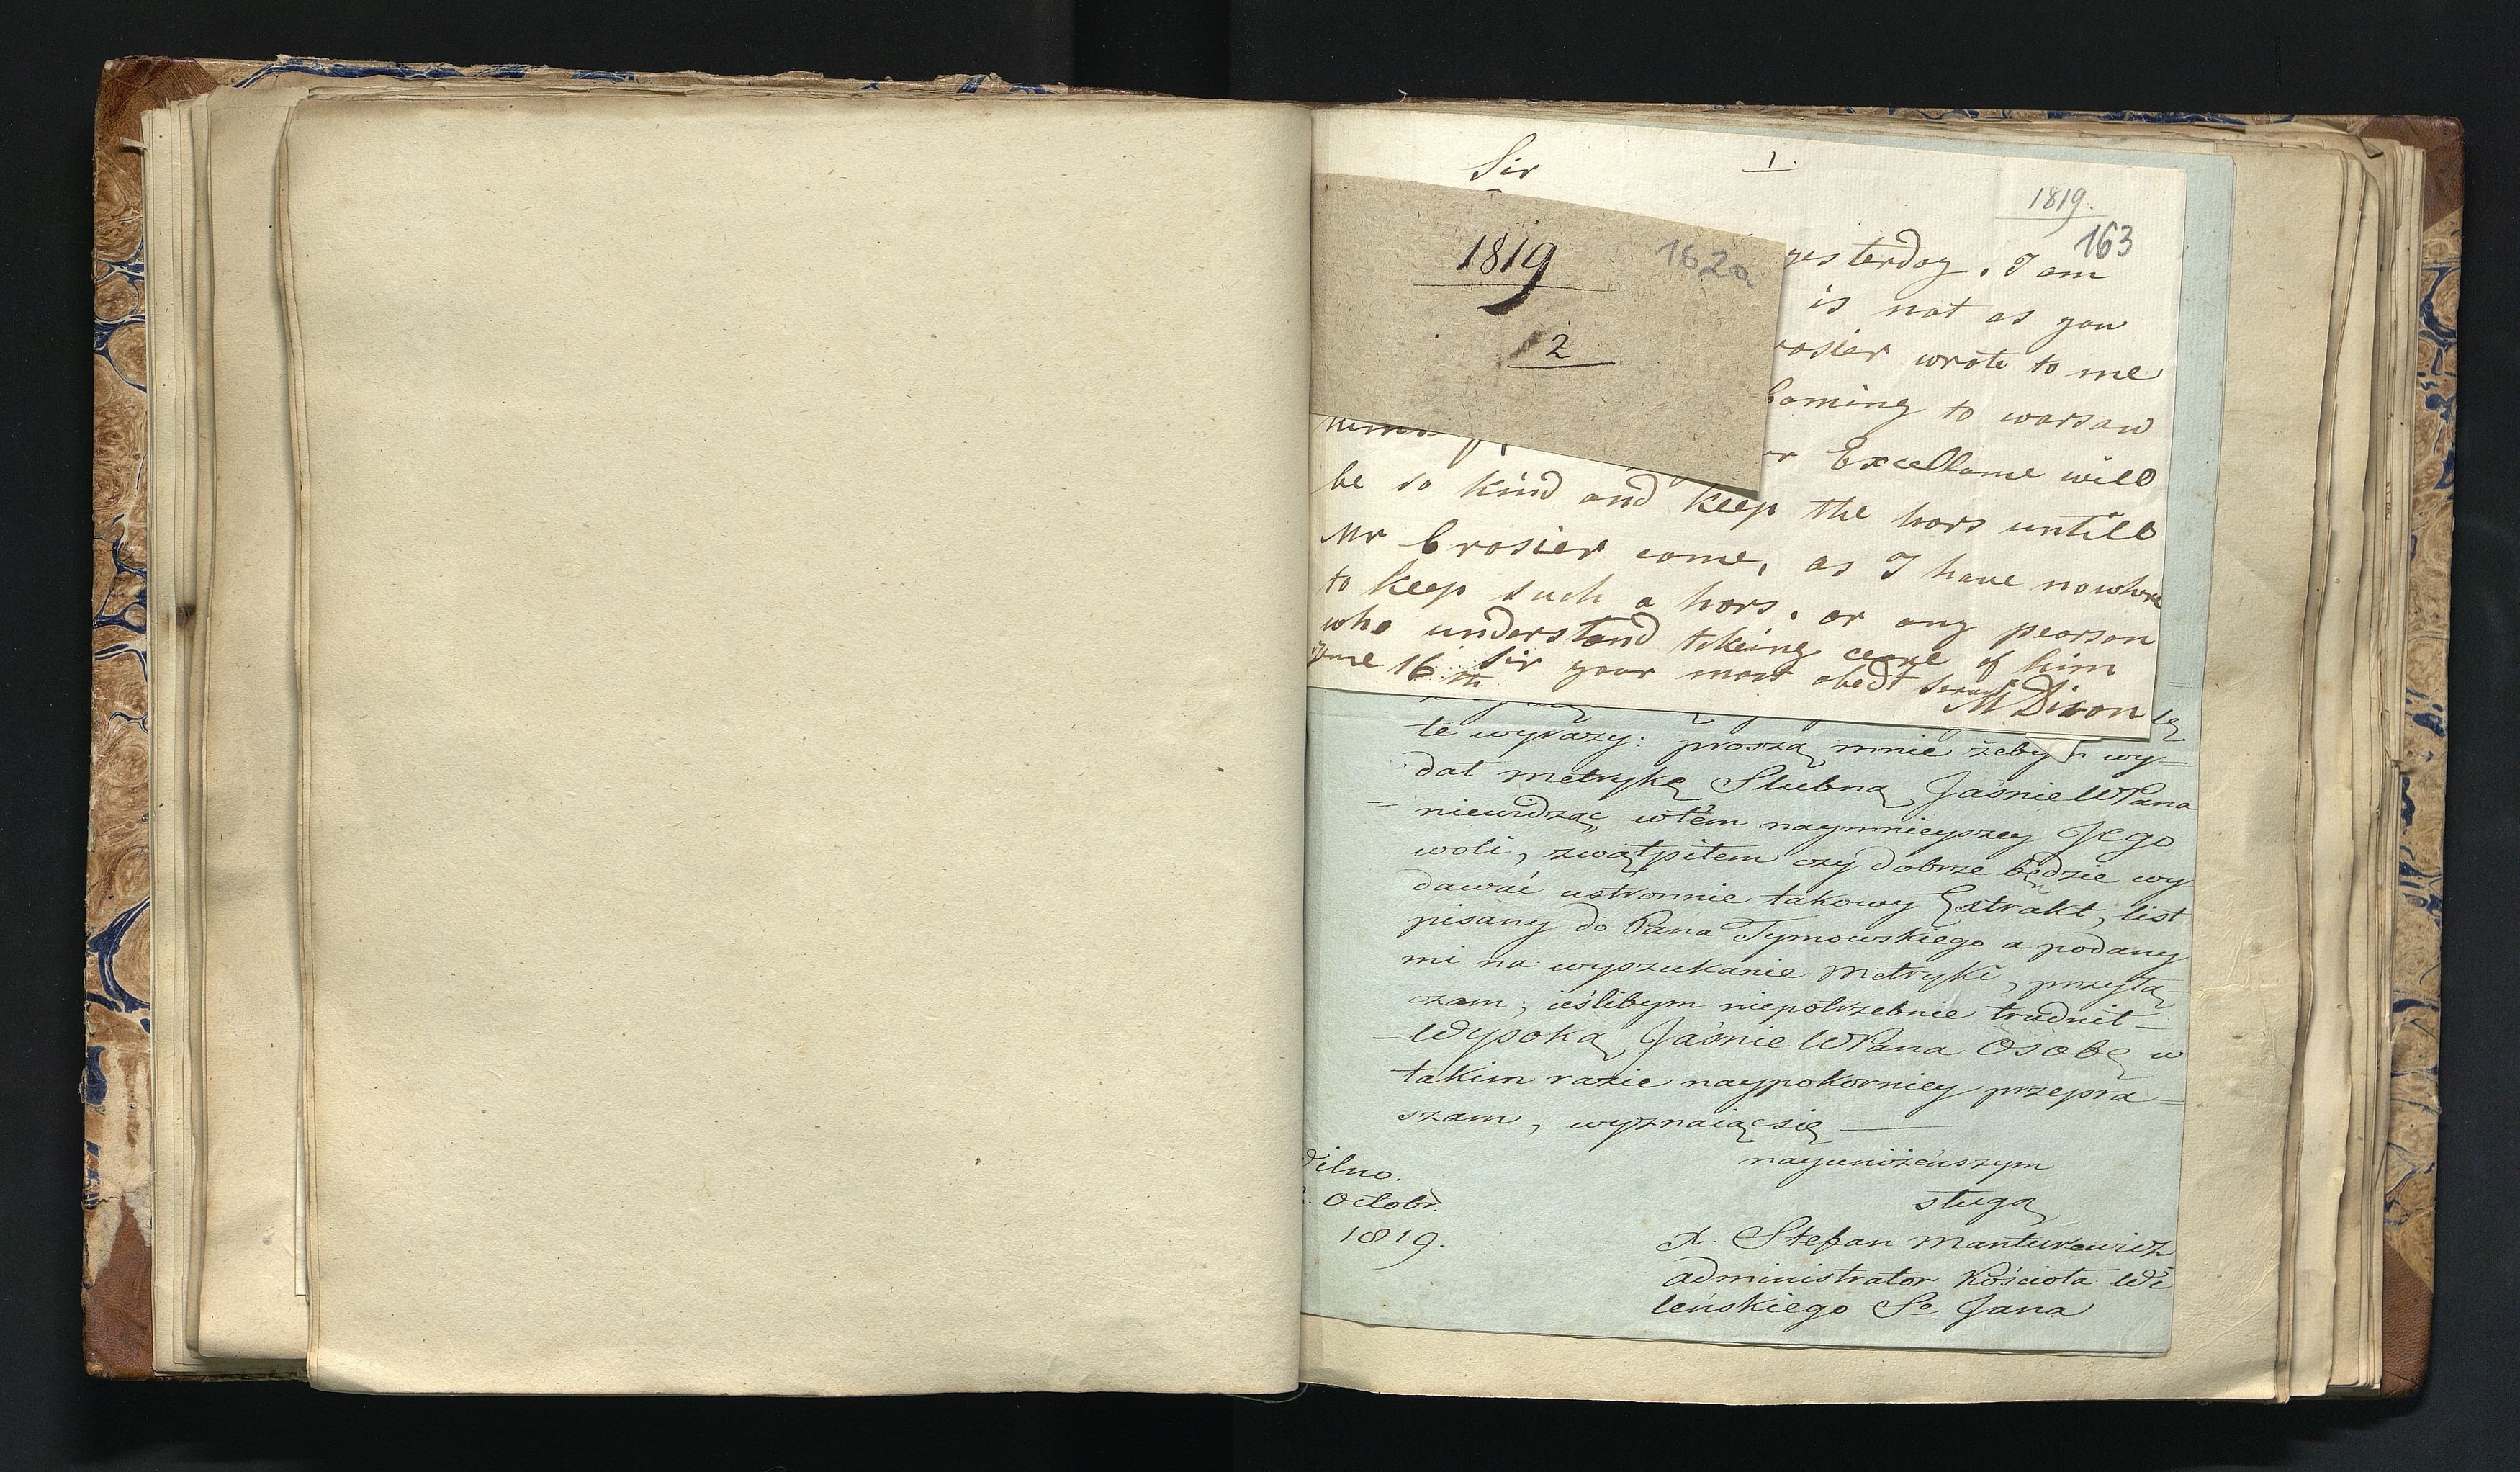 Sir
1.
1819.
163
1819
162a
2
yesterday. I am
is not as you
rosier wrote to me
Coming to warsaw
Excellame will
be so kind and keep the hors untill
Mr Crosier come, as I have nowhere
to keep such a hors. or any pearson
who understand tekeing ceare of him
June 16 th Sir your most obedt Servant
M Dixon
te wyrazy: proszą mnie żebym wy=
dał metrykę Slubną JaśnieWPana
niewidząc wtém naymnieyszey Jego
woli, zwątpiłem czy dobrze będzie wy
dawać ustronnie takowy Extrakt, list
pisany do Pana Tymowskiego a podany
mi na wyszukanie Metryki, przyłą
czam; ieślibym niepotrzebnie trudnił
Wysoką JaśnieWPana Osobę w
takim razie naypokorniey przepra=
szam, wyznaiąc się
nayuniżeńszym
sługą
Wilno.
Octobr.
1819.
X. Stefan Manturewicz
administrator Kościoła Wi
leńskiego So Jana